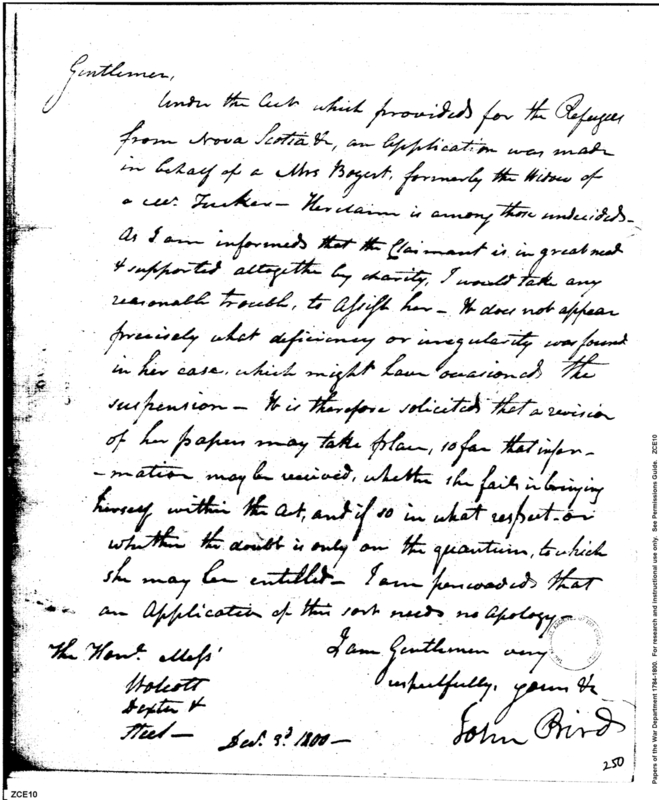 Gentlemen,
Under the Act which provided for the Refugees
from Nova Scotia &c, an application was made
in behalf of a Mrs Bogert, formerly the Widow of
a Mr. Tucker – Her claim is among those undecided –
As I am informed that the Claimant is in great need
& supported altogether by charity, I would take any
reasonable trouble, to Assist her – It does not appear
precisely what deficiency or irregularity was found
in her case, which might have occasioned the
suspension – It is therefore solicited that a revision
of her papers may take place, so far that infor-
-mation may be received, whether she fails in bringing
herself within the Act, and if so in what respect – or
whether the doubt is only on the quantum, to which
she may be entitled – I am perswaded that
an Application of this sort needs no Apology
I am Gentlemen very
respectfully, yours &c
John Bird
The Honl. Messs
Wolcott
Dexter &
Steel –
Decr. 3d. 1800 –
250
ZCE10
Papers of the War Department 1784-1800. For research and instructional use only. See Permissions Guide. ZCE10